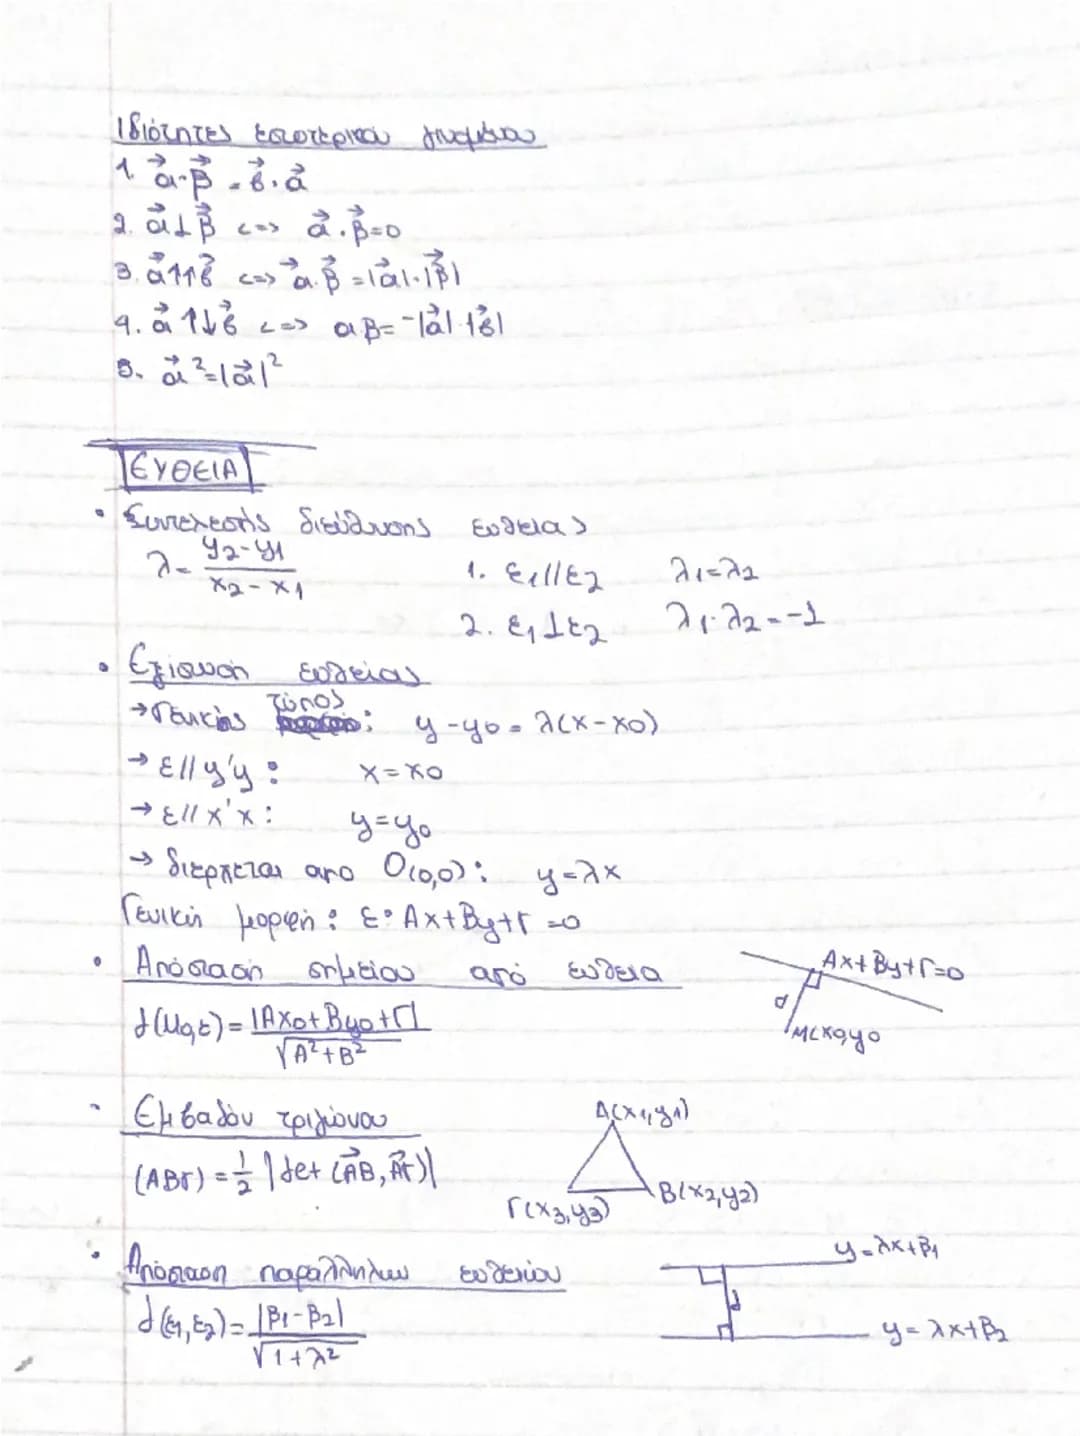 Ιδιότητες εσωτερικού γινομένου
1. α⃗·β⃗ = β⃗·α⃗
2. α⃗⊥β⃗ <=> α⃗·β⃗=0
3. α⃗↑↑β⃗ <=> α⃗·β⃗ =|α⃗|·|β⃗|
4. α⃗ ↑↓β⃗ <=> αβ= -|α⃗|·|β⃗|
5. α⃗²=|α⃗|²
ΕΥΘΕΙΑ
• Συντελεστής διεύθυνσης ευθείας
λ = (y2-y1)/(x2-x1)
1. ε1//ε2 λ1=λ2
2. ε1⊥ε2 λ1·λ2=-1
• Εξίσωση ευθείας
→Γενικός τύπος: y-y0 = λ(x-x0)
→ ε// y'y : x=x0
→ ε// x'x : y=y0
→ διέρχεται απο Ο(0,0): y=λx
Γενική μορφή: ε: Ax+By+Γ=0
• Απόσταση σημείου από ευθεία
d(M0,ε) = |Ax0+By0+Γ|/√A²+B²
Ax+By+Γ=0
d
M(x0,y0
• Εμβαδόν τριγώνου
(ΑΒΓ) = 1/2 |det (ΑΒ⃗, ΑΓ⃗)|
A(x1,y1)
B(x2,y2)
Γ(x3,y3)
• Απόσταση παραλλήλων ευθειών
d(ε1,ε2) = |β1-β2|/√1+λ²
y=λx+β1
d
y=λx+β2